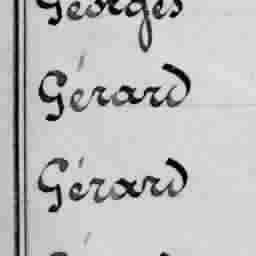 Georges
Gérard
Gérard